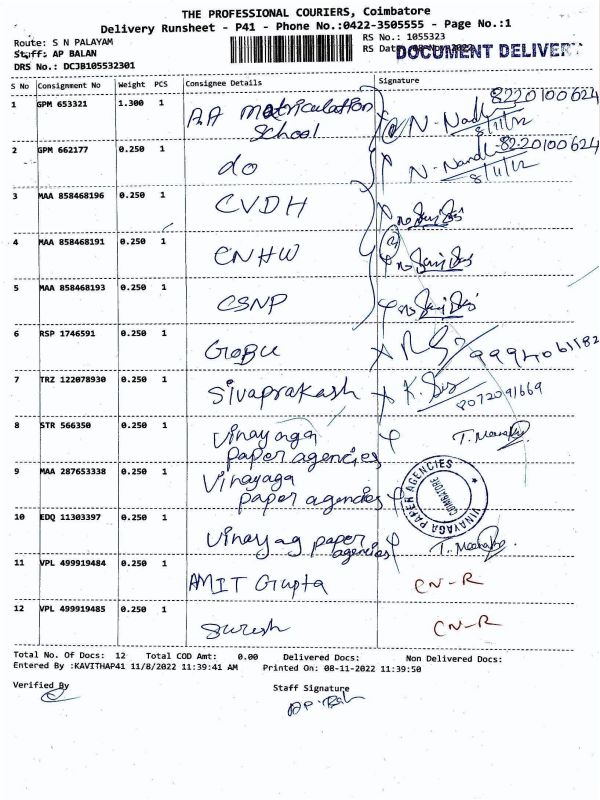 THE PROFESSIONAL COURIERS, Coimbatore
Delivery Runsheet - P41 - Phone No.:0422-3505555 - Page No.:1
Route: S N PALAYAM
RS No.: 1055323
Staff: AP BALAN
RS Date: 08-Nov-2022
DOCUMENT DELIVERY
DRS No.: DCJB105532301
S No Consignment No Weight PCS Consignee Details Signature
1 GPM 653321 1.300 1 AA Matriculation School N. Nandhi 8220100624
8/11/12
2 GPM 662177 0.250 1 do N. Nandhi 8220100624
8/11/12
3 MAA 858468196 0.250 1 CVDH
4 MAA 858468191 0.250 1 CNHW
5 MAA 858468193 0.250 1 CSNP
6 RSP 1746591 0.250 1 GOBU
7 TRZ 122078930 0.250 1 Sivaprakash 8072091669
8 STR 566350 0.250 1 Vinayaga paper agencies
9 MAA 287653338 0.250 1 Vinayaga paper agencies
VINAYAGA PAPER AGENCIES
COIMBATORE
10 EDQ 11303397 0.250 1 Vinayag paper agencies
11 VPL 499919484 0.250 1 AMIT Gupta CN-R
12 VPL 499919485 0.250 1 Suresh CN-R
Total No. Of Docs: 12 Total COD Amt: 0.00 Delivered Docs: Non Delivered Docs:
Entered By :KAVITHAP41 11/8/2022 11:39:41 AM Printed On: 08-11-2022 11:39:50
Verified By
Staff Signature